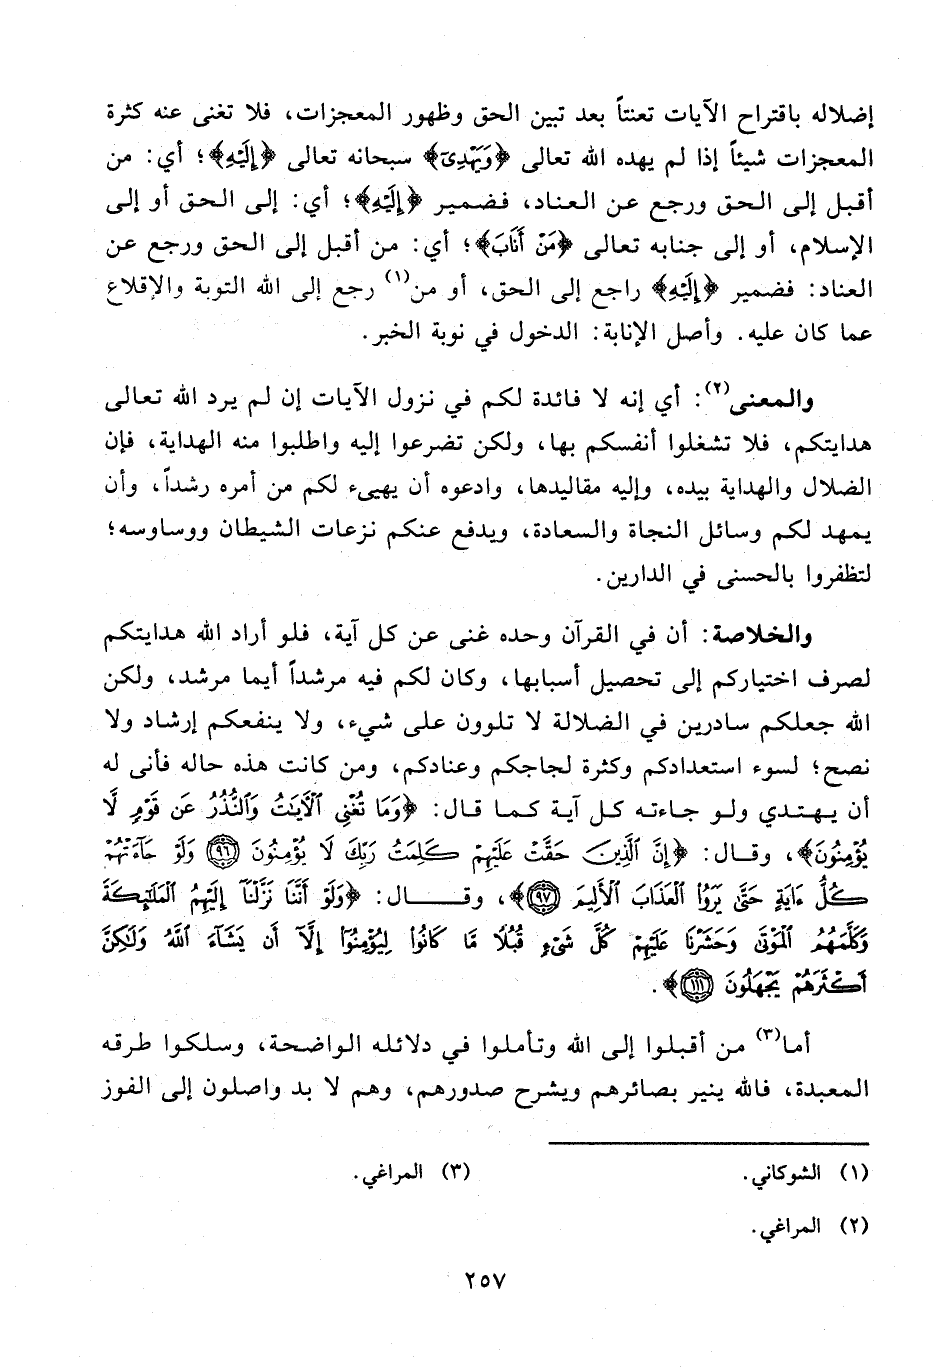 إضلاله باقتراح الآيات تعنتاً بعد تبين الحق وظهور المعجزات، فلا تغنى عنه كثرة
المعجزات شيئاً إذا لم يهده الله تعالى ﴿وَيَهْدِىٓ﴾ سبحانه تعالى ﴿إِلَيْهِ﴾؛ أي: من
أقبل إلى الحق ورجع عن العناد، فضمير ﴿إِلَيْهِ﴾؛ أي: إلى الحق أو إلى
الإسلام، أو إلى جنابه تعالى ﴿مَنْ أَنَابَ﴾؛ أي: من أقبل إلى الحق ورجع عن
العناد: فضمير ﴿إِلَيْهِ﴾ راجع إلى الحق، أو من(١) رجع إلى الله التوبة والإقلاع
عما كان عليه. وأصل الإنابة: الدخول في نوبة الخبر.
والمعنى(٢): أي إنه لا فائدة لكم في نزول الآيات إن لم يرد الله تعالى
هدايتكم، فلا تشغلوا أنفسكم بها، ولكن تضرعوا إليه واطلبوا منه الهداية، فإن
الضلال والهداية بيده، وإليه مقاليدها، وادعوه أن يهيىء لكم من أمره رشداً، وأن
يمهد لكم وسائل النجاة والسعادة، ويدفع عنكم نزعات الشيطان ووساوسه؛
لتظفروا بالحسنى في الدارين.
والخلاصة: أن في القرآن وحده غنى عن كل آية، فلو أراد الله هدايتكم
لصرف اختياركم إلى تحصيل أسبابها، وكان لكم فيه مرشداً أيما مرشد، ولكن
الله جعلكم سادرين في الضلالة لا تلوون على شيء، ولا ينفعكم إرشاد ولا
نصح؛ لسوء استعدادكم وكثرة لجاجكم وعنادكم، ومن كانت هذه حاله فأنى له
أن يهتدي ولو جاءته كل آية كما قال: ﴿وَمَا تُغْنِى ٱلْأَيَٰتُ وَٱلنُّذُرُ عَن قَوْمٍ لَّا
يُؤْمِنُونَ﴾، وقال: ﴿إِنَّ ٱلَّذِينَ حَقَّتْ عَلَيْهِمْ كَلِمَتُ رَبِّكَ لَا يُؤْمِنُونَ ٩٦ وَلَوْ جَآءَتْهُمْ
كُلُّ ءَايَةٍ حَتَّىٰ يَرَوُا۟ ٱلْعَذَابَ ٱلْأَلِيمَ ٩٧﴾، وقـــال: ﴿وَلَوْ أَنَّنَا نَزَّلْنَآ إِلَيْهِمُ ٱلْمَلَٰٓئِكَةَ
وَكَلَّمَهُمُ ٱلْمَوْتَىٰ وَحَشَرْنَا عَلَيْهِمْ كُلَّ شَىْءٍ قُبُلًا مَّا كَانُوا۟ لِيُؤْمِنُوٓا۟ إِلَّآ أَن يَشَآءَ ٱللَّهُ وَلَٰكِنَّ
أَكْثَرَهُمْ يَجْهَلُونَ ١١١﴾.
أما(٣) من أقبلوا إلى الله وتأملوا في دلائله الواضحة، وسلكوا طرقه
المعبدة، فالله ينير بصائرهم ويشرح صدورهم، وهم لا بد واصلون إلى الفوز
(١) الشوكاني.
(٣) المراغي.
(٢) المراغي.
٢٥٧